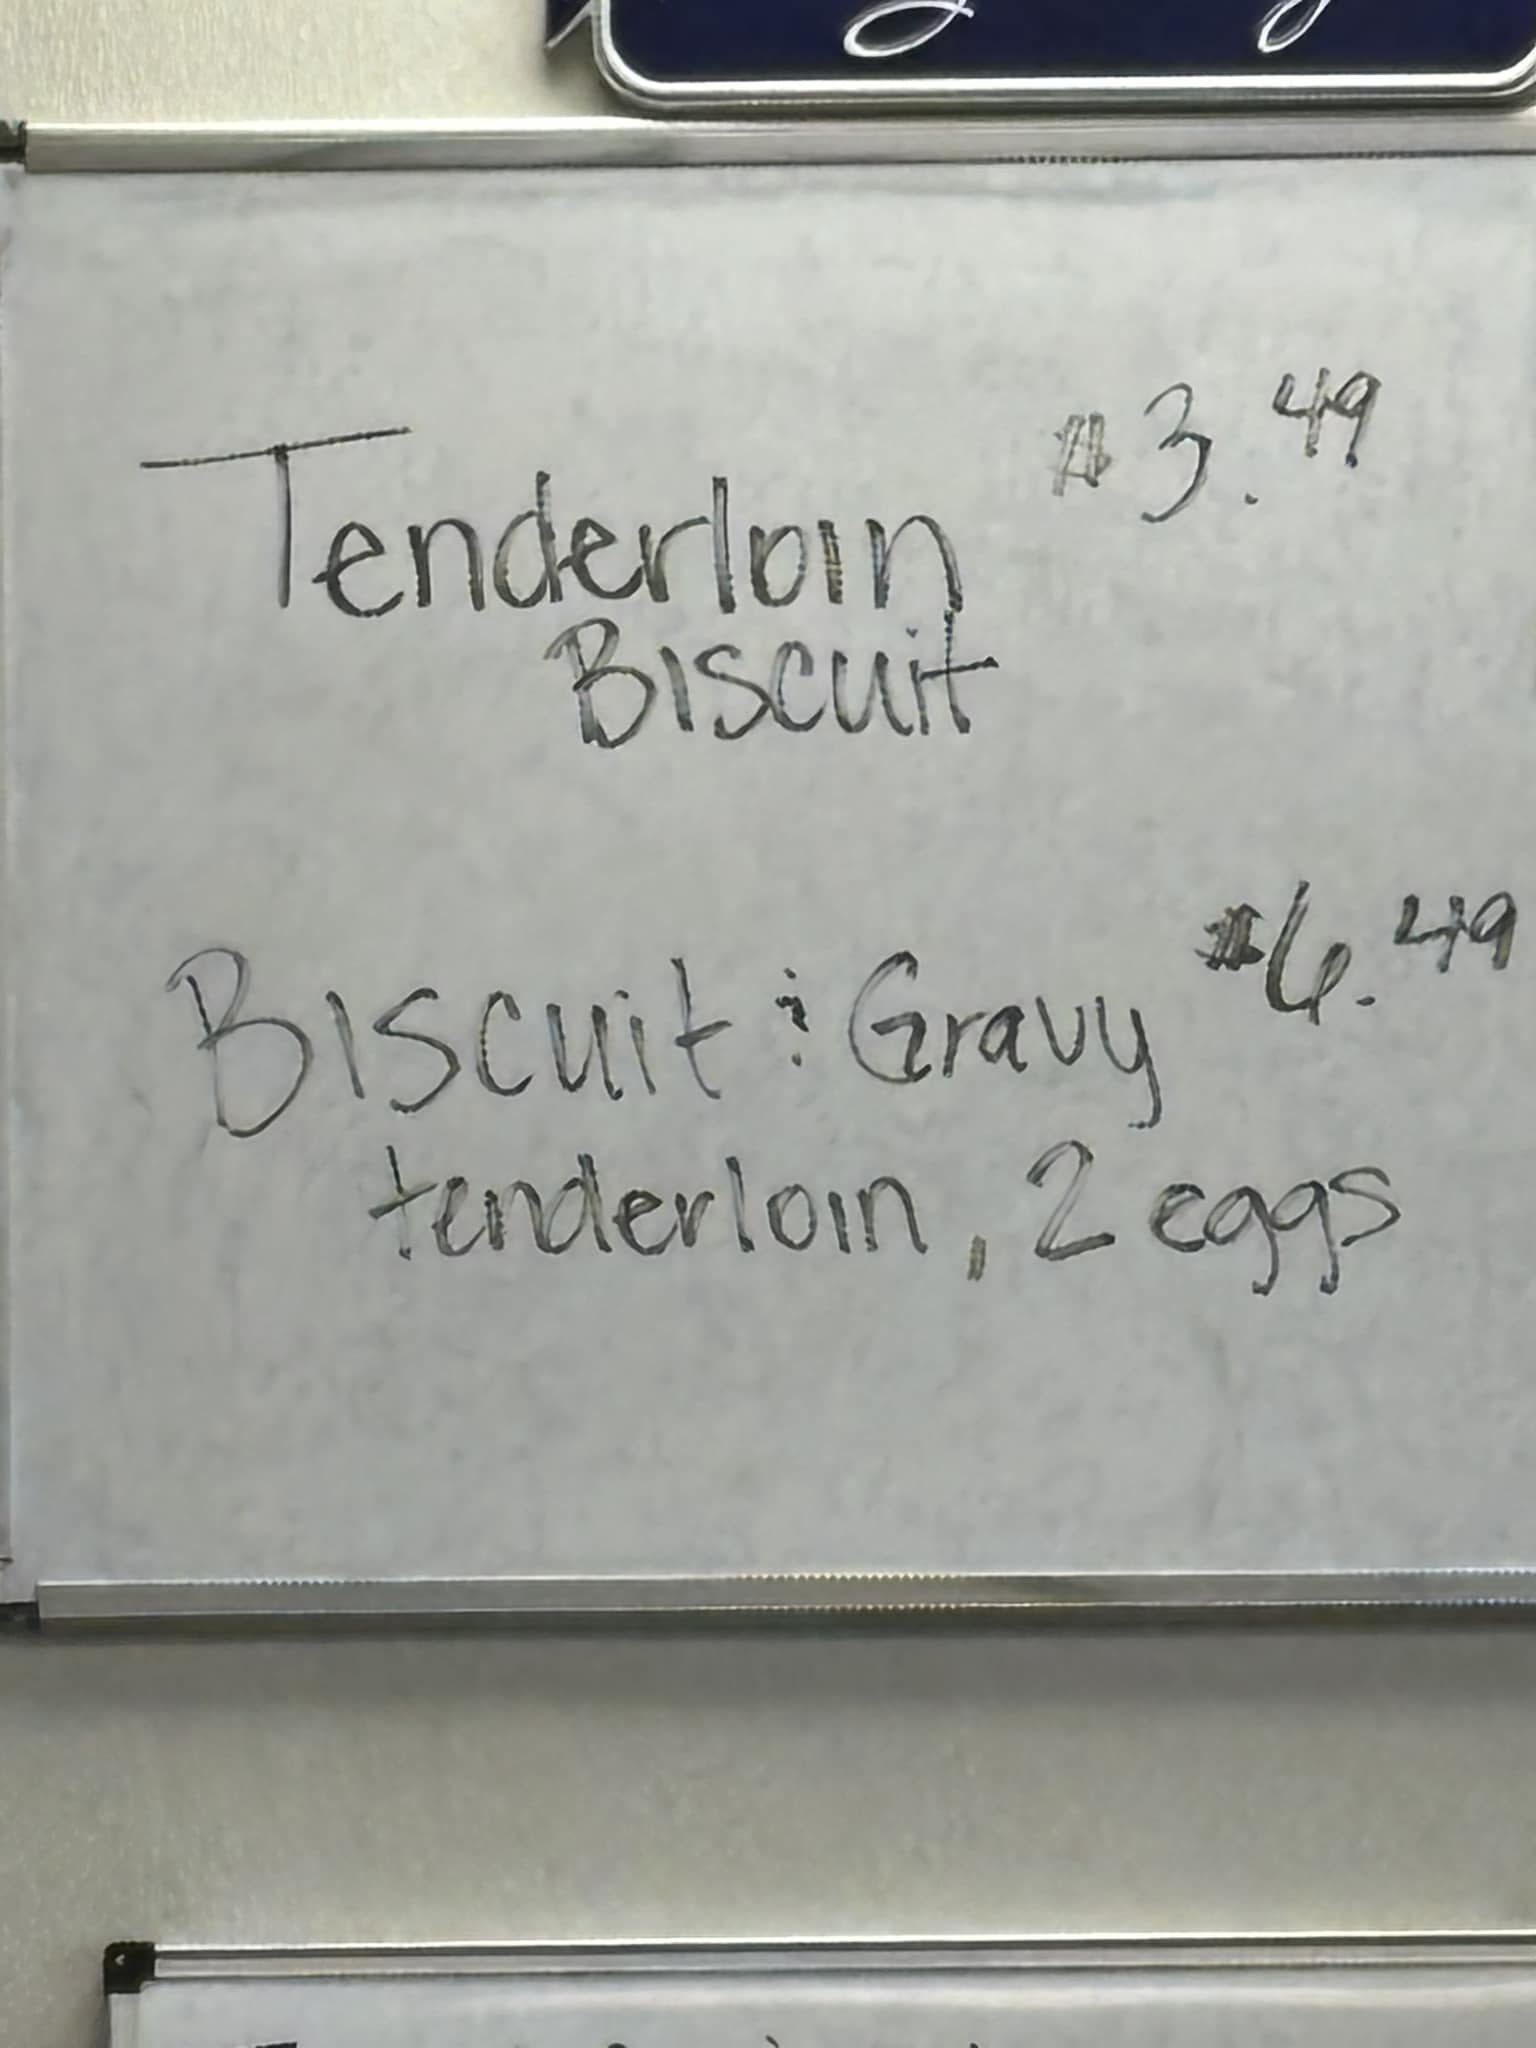 Tenderloin $3.49
Biscuit
Biscuit & Gravy $6.49
tenderloin, 2 eggs